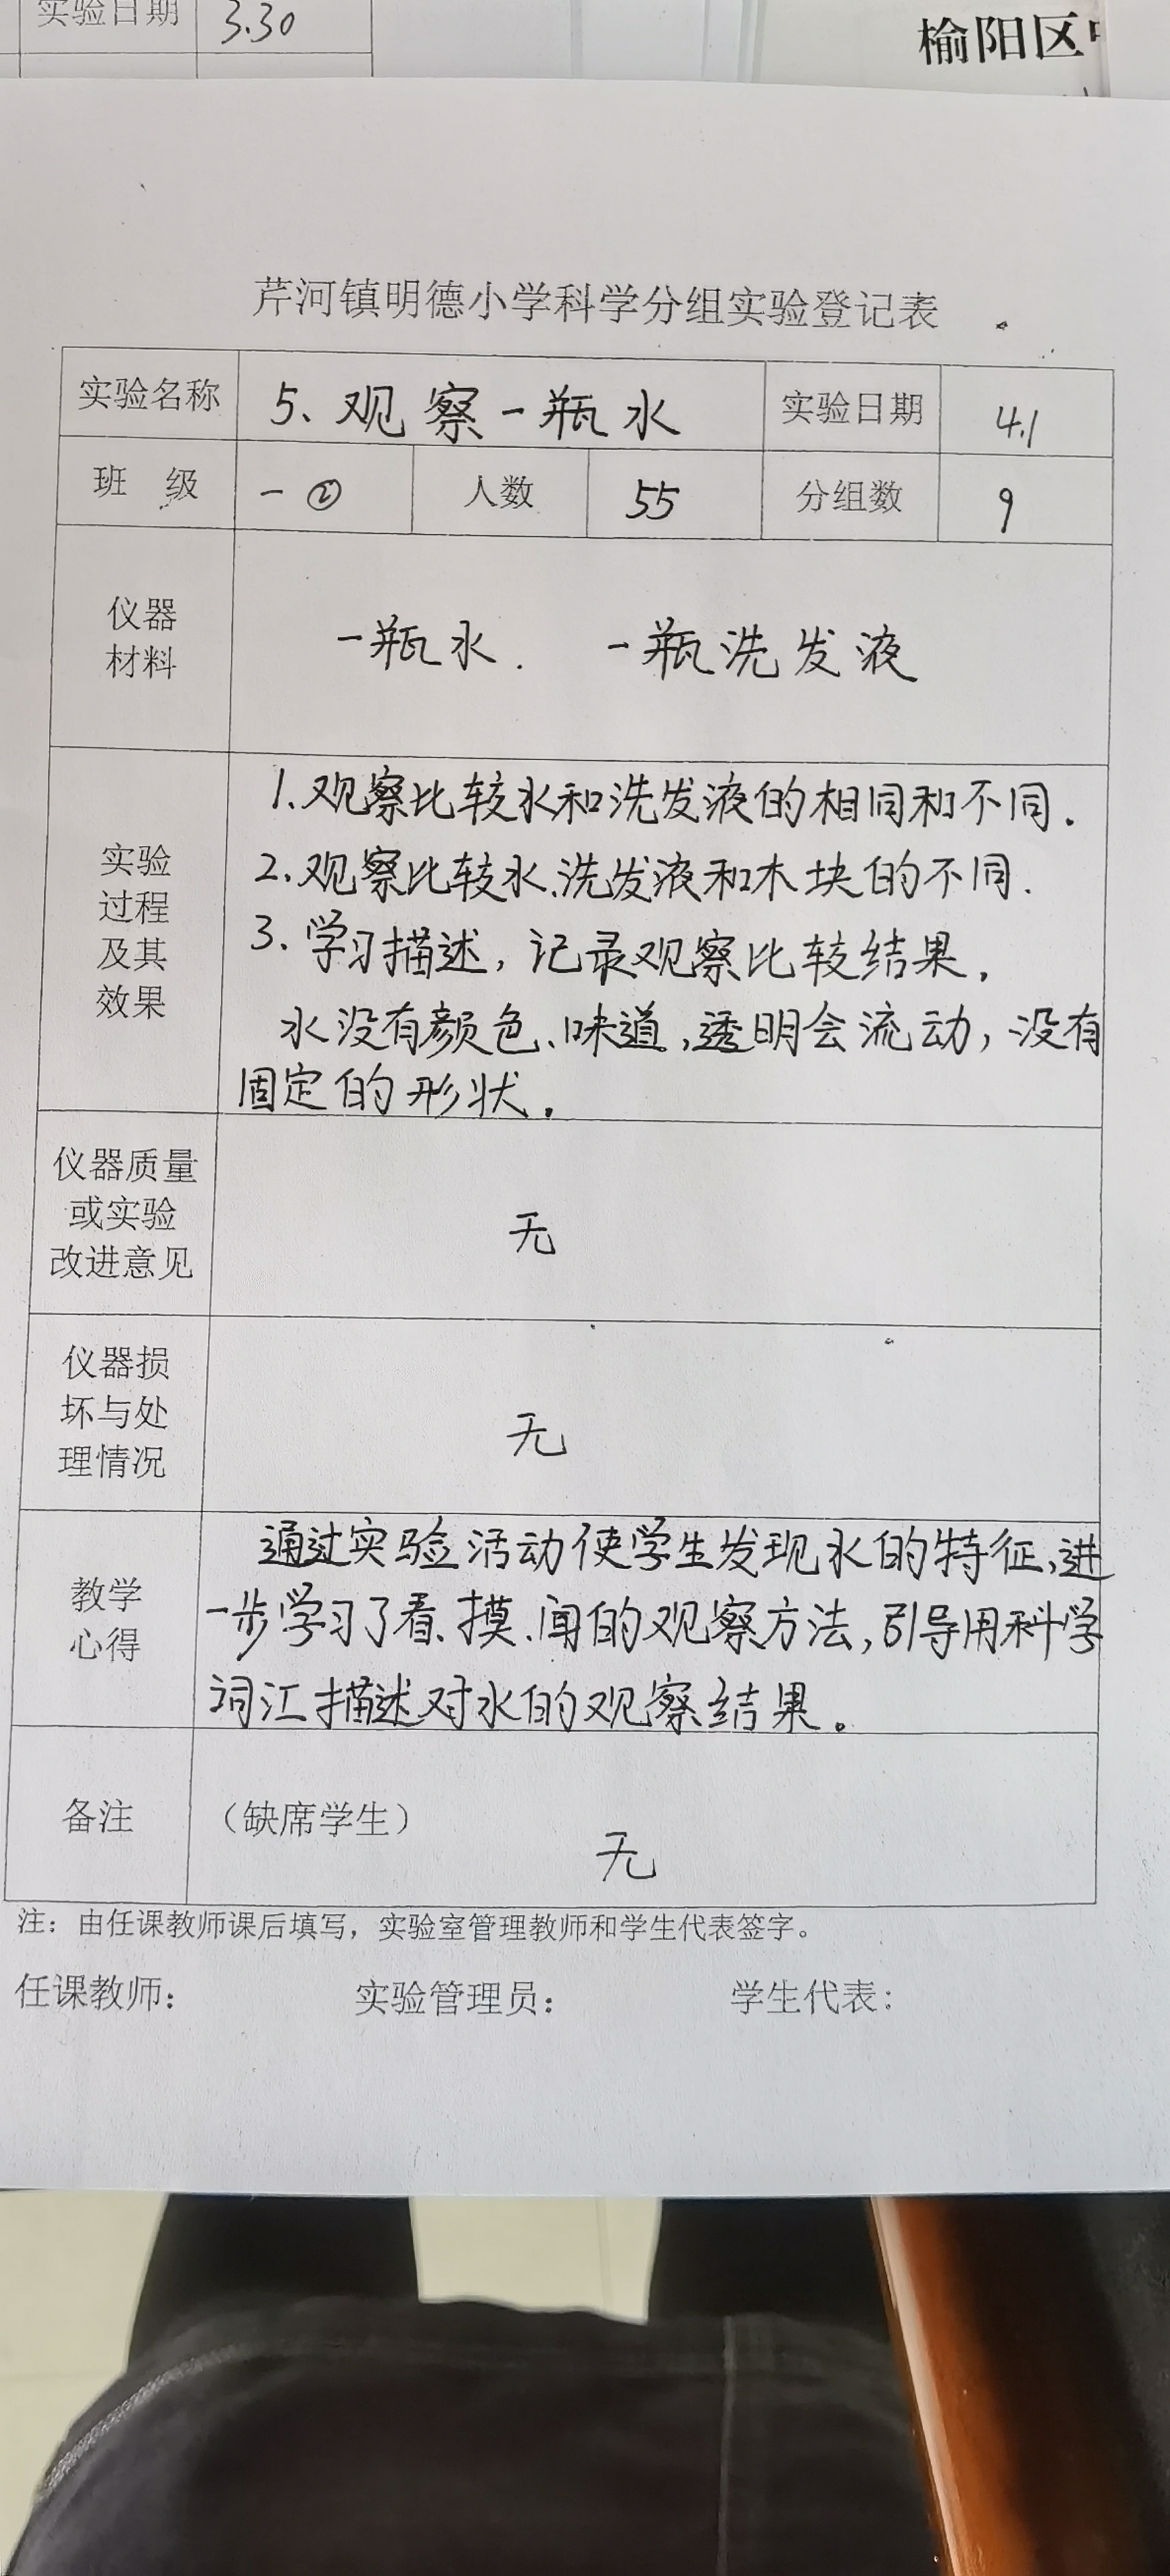 实验日期 3.30
榆阳区
芹河镇明德小学科学分组实验登记表
实验名称 5、观察一瓶水 实验日期 4.1
班 级 一② 人数 55 分组数 9
仪器
材料
一瓶水. 一瓶洗发液
实验
过程
及其
效果
1、观察比较水和洗发液的相同和不同.
2、观察比较水、洗发液和木块的不同.
3、学习描述, 记录观察比较结果.
水没有颜色、味道,透明会流动, 没有
固定的形状.
仪器质量
或实验
改进意见
无
仪器损
坏与处
理情况
无
教学
心得
通过实验活动使学生发现水的特征,进
一步学习了看、摸、闻的观察方法,引导用科学
词汇描述对水的观察结果。
备注
（缺席学生）
无
注：由任课教师课后填写，实验室管理教师和学生代表签字。
任课教师： 实验管理员： 学生代表：